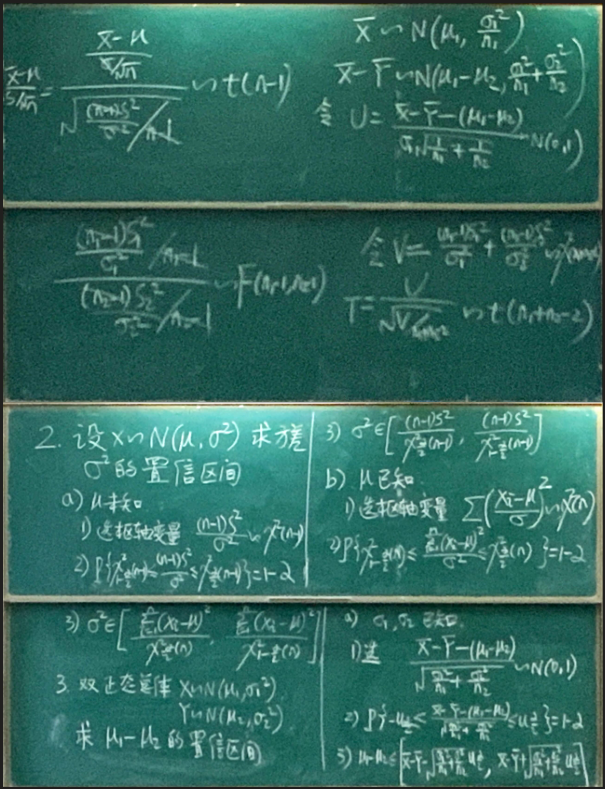 (X̄-μ)/(S/√n) = ((X̄-μ)/(σ/√n)) / √(((n-1)S²/σ²)/(n-1)) ~ t(n-1)
X̄ ~ N(μ₁, σ₁²/n₁)
X̄-Ȳ ~ N(μ₁-μ₂, σ₁²/n₁ + σ₂²/n₂)
令 U = (X̄-Ȳ-(μ₁-μ₂)) / (σ√(1/n₁ + 1/n₂)) ~ N(0,1)
(((n₁-1)S₁²/σ₁²)/(n₁-1)) / (((n₂-1)S₂²/σ₂²)/(n₂-1)) ~ F(n₁-1, n₂-1)
令 V = (n₁-1)S₁²/σ₁² + (n₂-1)S₂²/σ₂² ~
T = U/√(V/(n₁+n₂-2)) ~ t(n₁+n₂-2)
2. 设 X ~ N(μ, σ²) 求方差
σ² 的置信区间
a) μ未知
1) 选枢轴变量 (n-1)S²/σ² ~ χ²(n-1)
2) P{χ²_{1-α/2}(n-1) ≤ (n-1)S²/σ² ≤ χ²_{α/2}(n-1)} = 1-α
3) σ² ∈ [(n-1)S²/χ²_{α/2}(n-1), (n-1)S²/χ²_{1-α/2}(n-1)]
b) μ已知.
1) 选枢轴变量 Σ((Xᵢ-μ)/σ)² ~ χ²(n)
2) P{χ²_{1-α/2}(n) ≤ Σ(Xᵢ-μ)²/σ² ≤ χ²_{α/2}(n)} = 1-α
3) σ² ∈ [Σ(Xᵢ-μ)²/χ²_{α/2}(n), Σ(Xᵢ-μ)²/χ²_{1-α/2}(n)]
3. 双正态总体 X ~ N(μ₁, σ₁²)
Y ~ N(μ₂, σ₂²)
求 μ₁-μ₂ 的置信区间
a) σ₁, σ₂ 已知.
1) 选 (X̄-Ȳ-(μ₁-μ₂)) / √(σ₁²/n₁ + σ₂²/n₂) ~ N(0,1)
2) P{-u_{α/2} ≤ (X̄-Ȳ-(μ₁-μ₂)) / √(σ₁²/n₁ + σ₂²/n₂) ≤ u_{α/2}} = 1-α
3) μ₁-μ₂ ∈ [X̄-Ȳ-√(σ₁²/n₁ + σ₂²/n₂) u_{α/2}, X̄-Ȳ+√(σ₁²/n₁ + σ₂²/n₂) u_{α/2}]